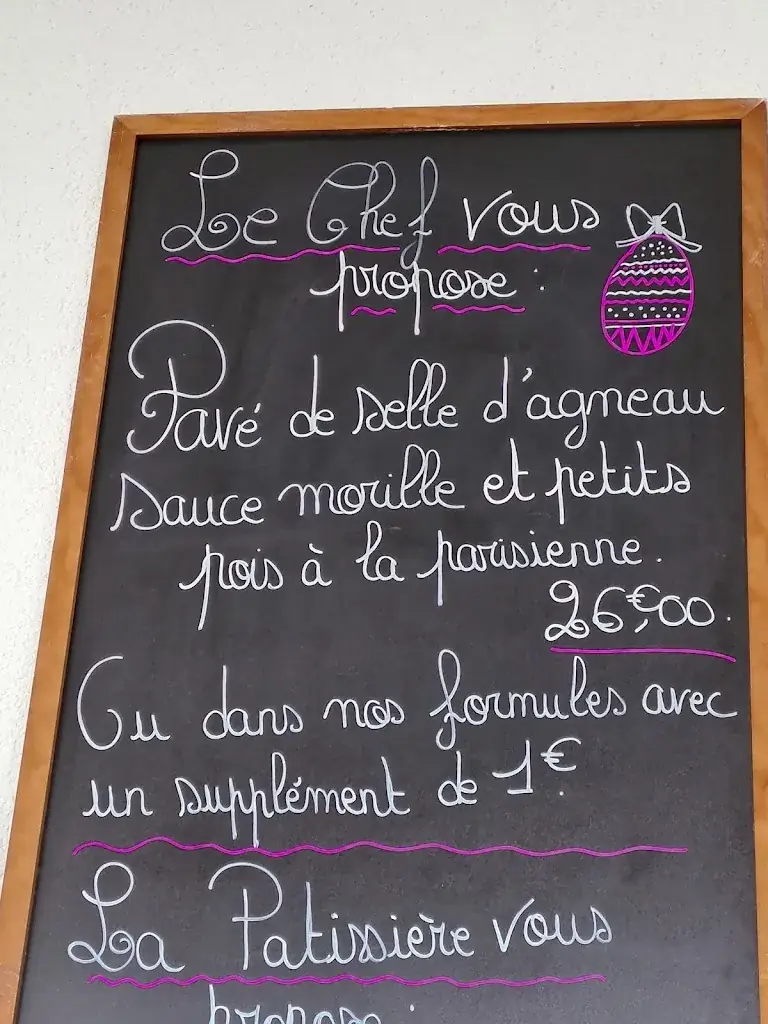 Le Chef vous
propose :
Pavé de selle d'agneau
sauce morille et petits
pois à la parisienne.
26€,00.
Ou dans nos formules avec
un supplément de 1€.
La Patissière vous
propose :